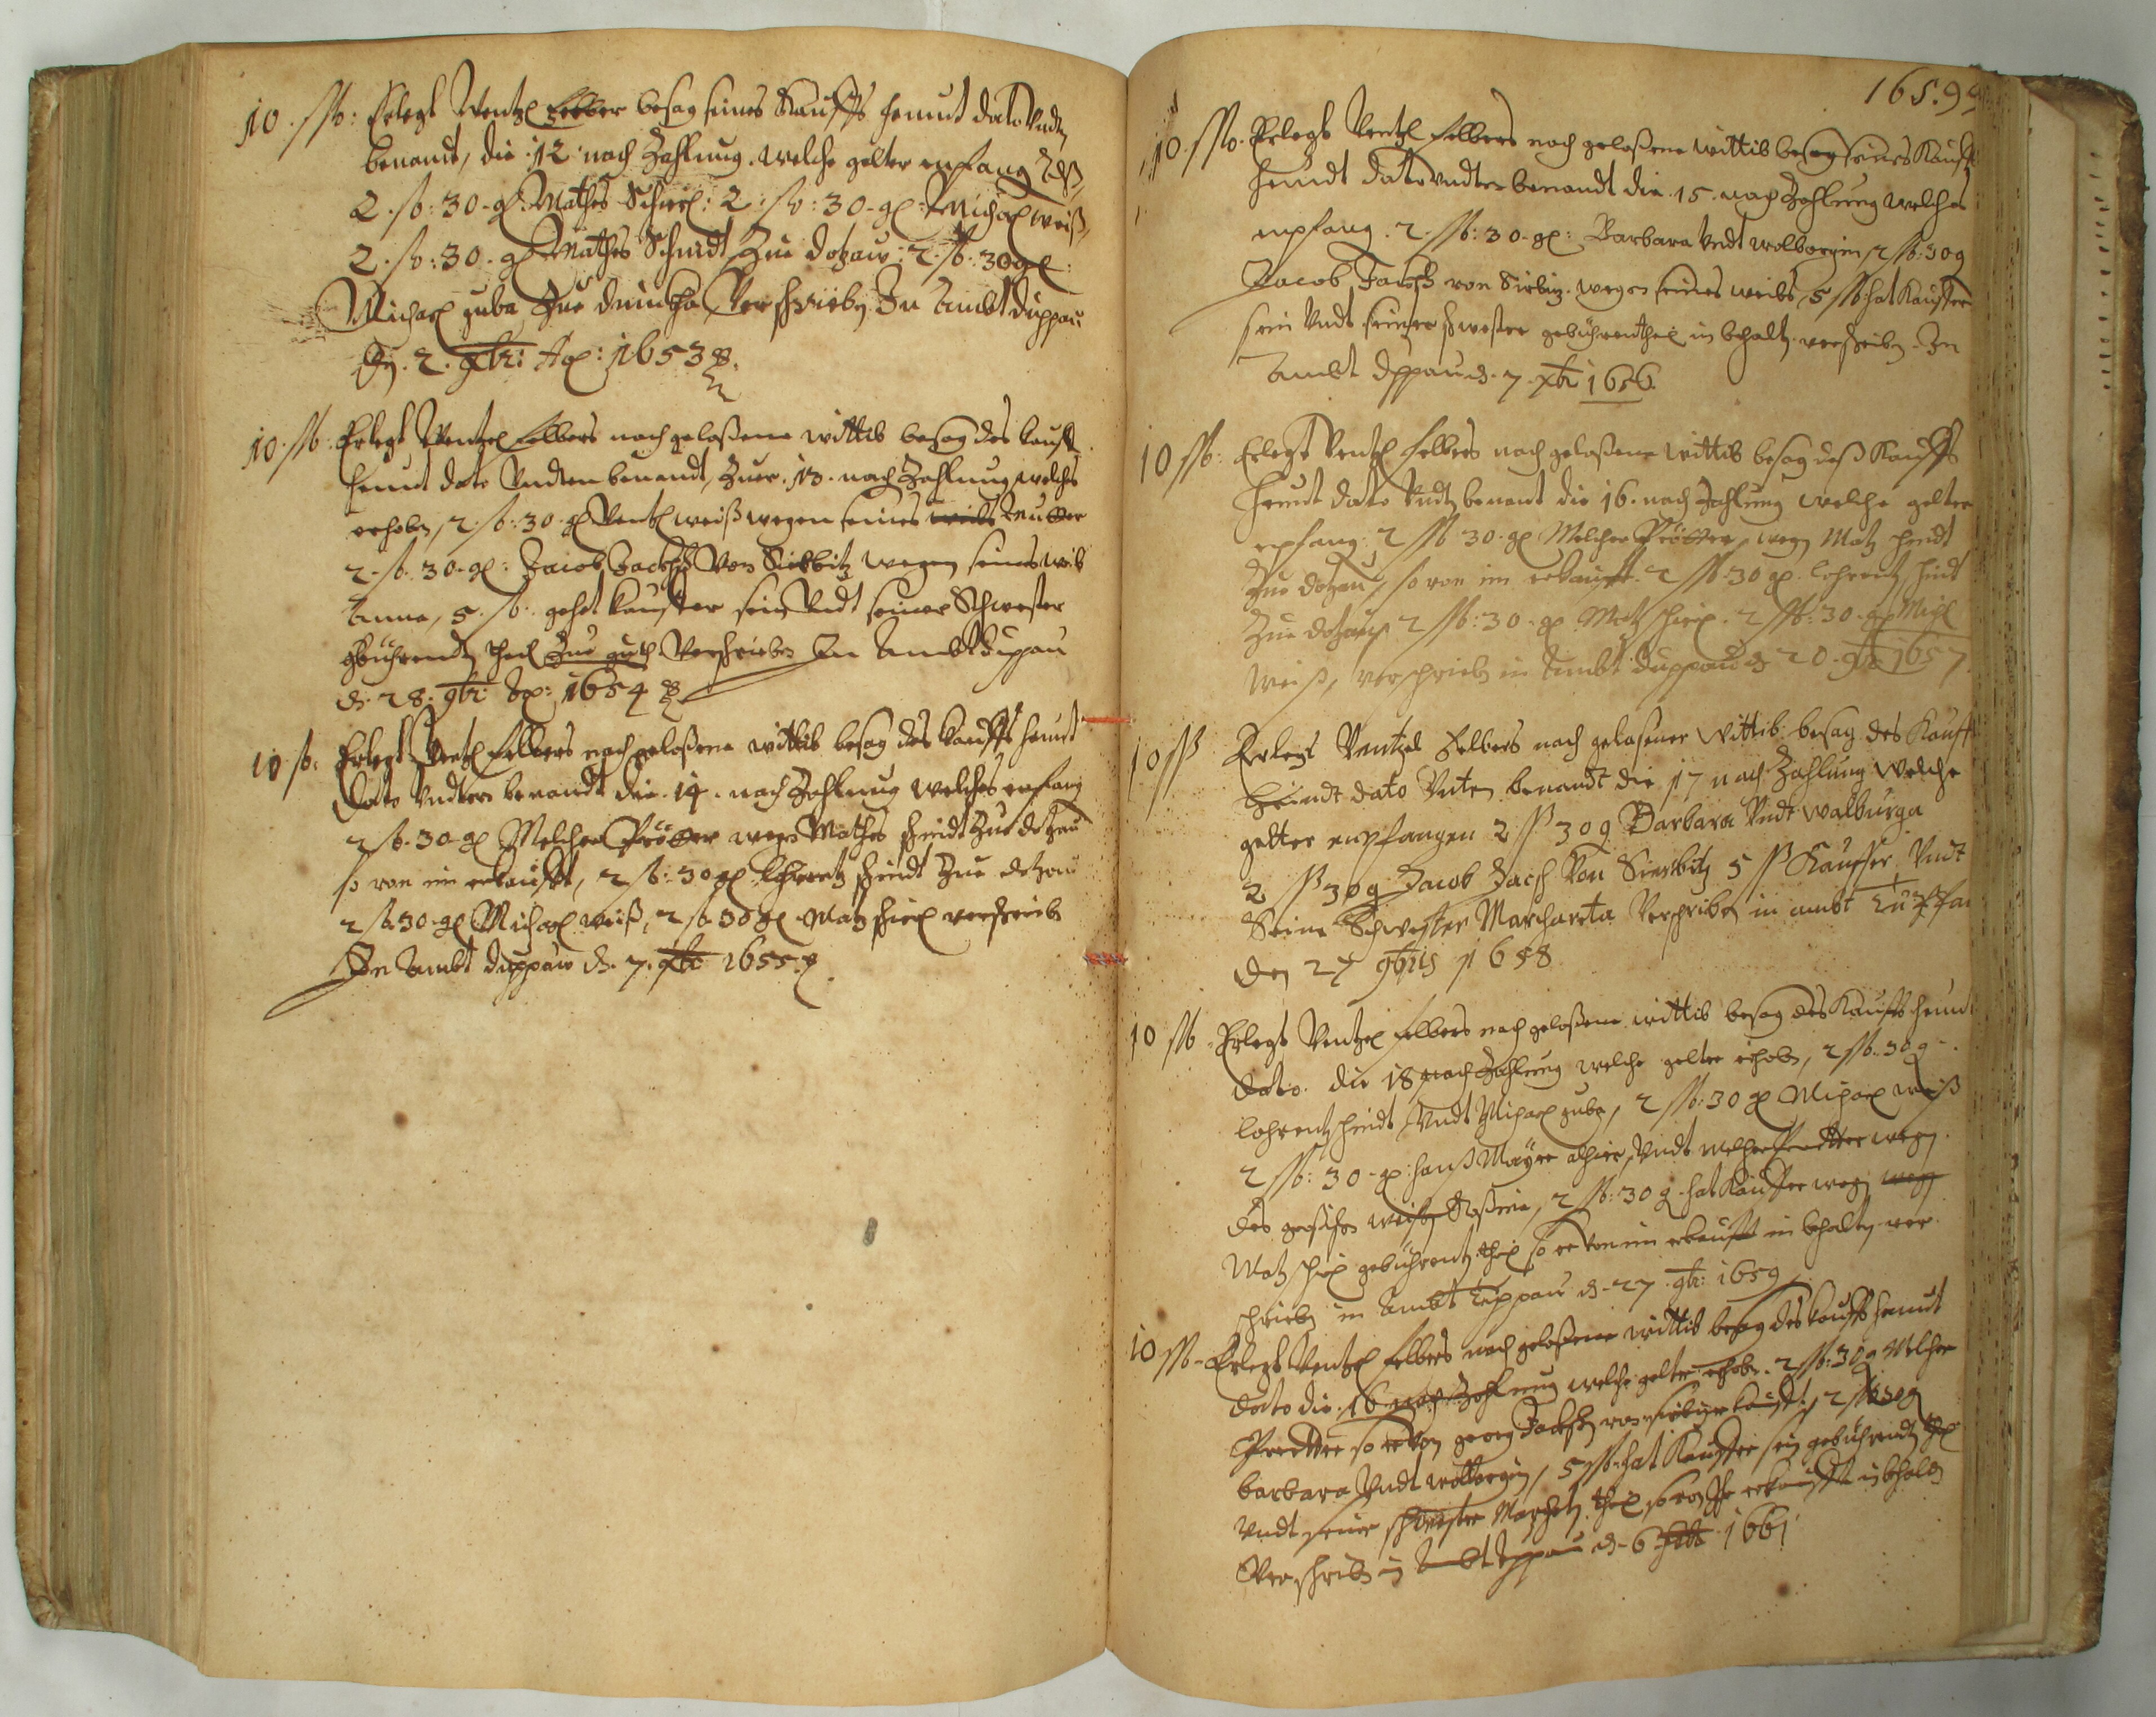 10 ßo: Erlegt Wentzl Felber besag seines Kauffs heunt dato Undten
benandt, die 12 nach Zahlung. welche gelter enpfang
2. ßo: 30. gl. Mathes Schierl: 2: ßo: 30. gl: Michael weiß
2. ßo: 30. gl Mathes Schmidt Zue dotzaw: 2. ßo. 30 gl:
Michael guba Zue Verschrieben In Ambt duppau
den. 2. 9br: Ao: 1653
10. ßo: Erlegt Wentzel Felbers nach gelaßene wittib besag des kauffs
heunt dato Undten benandt, Zuer. 13. nach Zahlung welches
erhoben, 2. ßo: 30. gl Wentzl weiß wegen seines weibs
2. ßo. 30. gl: Jacob Jacksch Von Sirbitz wegen seines weib
Anna, 5. ßo. gehet kauffer sein Undt seiner Schwester
gbührendten theil Zue guth Verschrieben In Ambt duppau
d. 28. 9br: Ao: 1654
10 ßo: Erlegt Wentzl Felbers nach gelaßene wittib besag des kauffs heunt
dato Undten benandt die. 14. nach Zahlung welches enpfang
2 ßo. 30. gl Melcher wegen Mathes schmidt Zue dotzau
so von im erkaufft, 2 ßo: 30 gl Lohrentz schmidt Zue dotzau
2 ßo 30. gl Michael weiß, 2 ßo 30 gl Matz schierl verschrieben
In Ambt duppau d. 7. 1655.
165. 99
10. ßo. Erlegt Wentzl Felbers nach gelaßene wittib besag seines Kauff
heundt dato undten benandt die. 15. nach Zahlung welches
enpfang. 2. ßo: 30. gl: Barbara Undt wolborgin, 2 ßo: 30 g
Jacob Jacksch von Sirbitz. wegen seines weibs, 5 ßo: hat Kauffer
sein Undt seiner schwester gebührentheil in behalten verschrieben. In
Ambt dppau d. 7. xbr 1656.
10 ßo: Erlegt Wentzl Felbers nach gelaßene wittib besag deß Kauffs
heunt dato Undten benant die 16. nach Zahlung welche gelter
enpfang: 2 ßo 30. gl Melcher wegen Matz schmidt
Zue dotzau, so von im erkaufft. 2 ßo. 30 gl. Lohrentz schmidt
Zue dotzau 2 ßo: 30. gl Matz schierl. 2 ßo: 30. gl Michl
weiß, verschrieben in Ambt duppau d 20. 9br 1657.
10 ß Erlegt Wentzel Felbers nach gelasener Wittib besag des Kauff
heundt dato Unten benandt die 17 nach Zahlung Welche
gelter enpfangen 2 ß 30 g Barbara Undt walburga
2 ß 30 g Jacob Jacsch Von Sierbitz 5 ß Kauffer Undt
Seine Schwester Marchareta Verschriben in ambt
den 27 9bris 1658
10 ßo. Erlegt Wentzel Felbers nach gelaßene wittib besag des Kauffs heundt
dato. die 18 nach Zahlung welche gelter erhoben, 2 ßo. 30 g
lohrentz schmidt Undt Michael guba, 2 ßo: 30 gl Michael weiß
2 ßo: 30. gl: hanß Mayer alhier, Undt Melcher wegen
des 2 ßo: 30 g. hat Kauffer wegen
Matz schierl gebührent theil so er von im erkaufft in behalten ver
schrieben in Ambt Tuppau d. 27. 9br: 1659
10 ßo. Erlegt Wentzel Felbers nach gelaßene wittib besag des kauffs heundt
dato die. 16 nach Zahlung welche gelter erhoben. 2 ßo: 30 g Melcher
so er von georg Jacksch von 2 ßo 30 g
barbara Undt wolborgin, 5 ßo. hat Kauffer sein gebührendten theil
Undt seiner schwester theil so er von Ihr erkaufft in behalten
Verschrieben in Ambt Tppau d. 6 1661